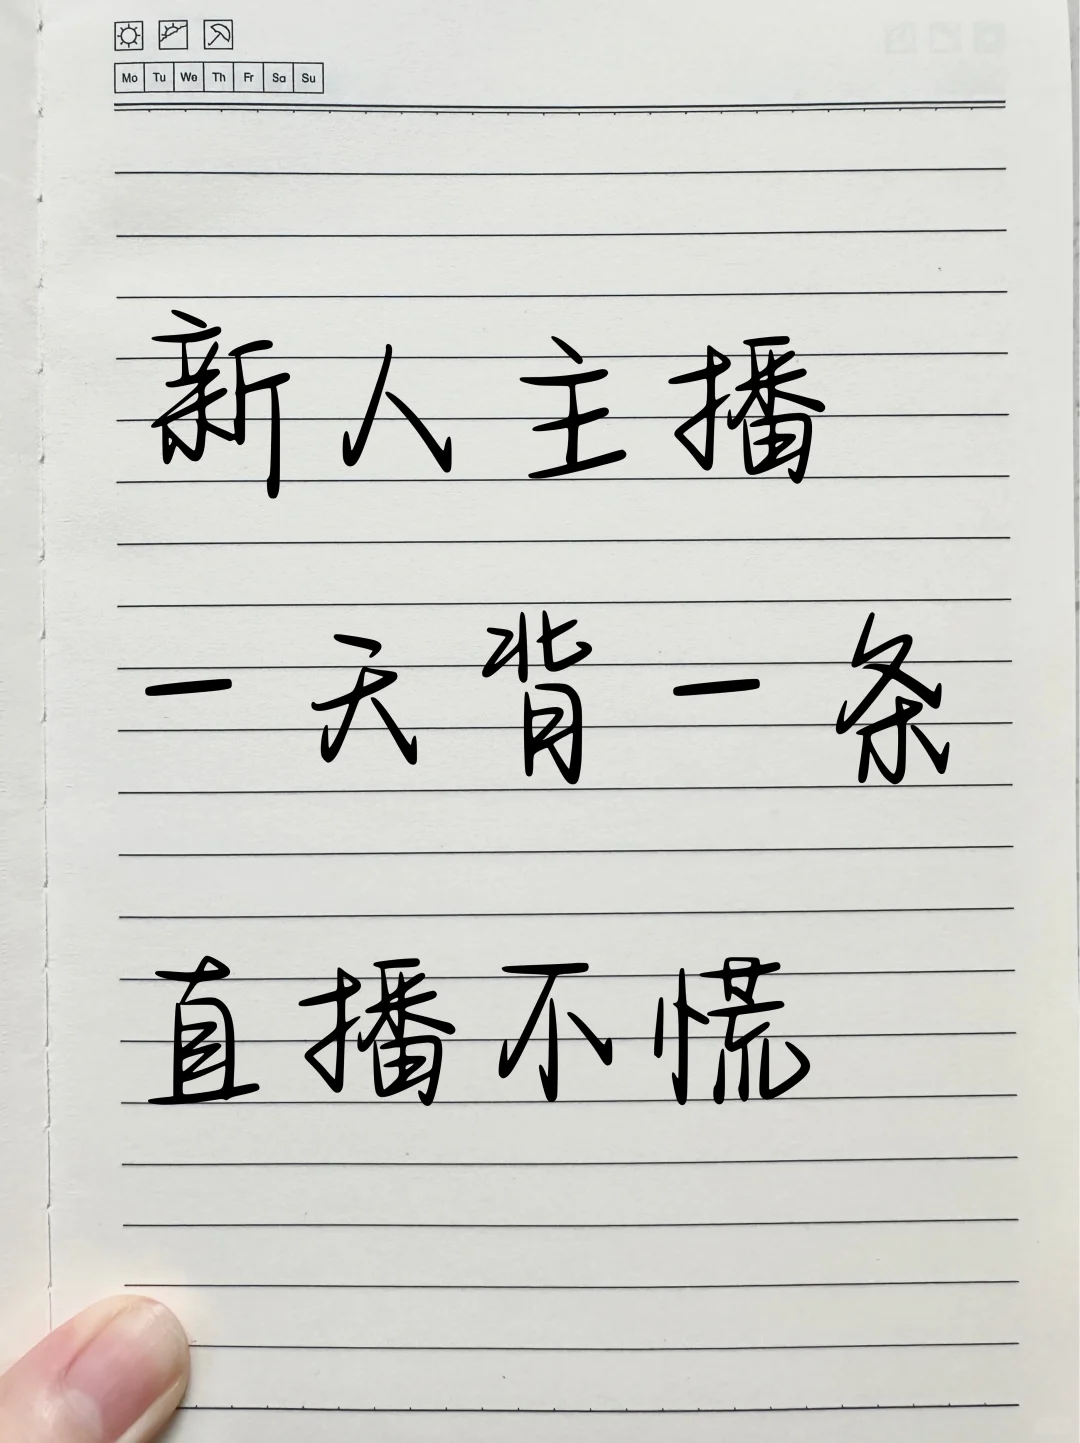 Mo Tu We Th Fr Sa Su
新人主播
一天背一条
直播不慌